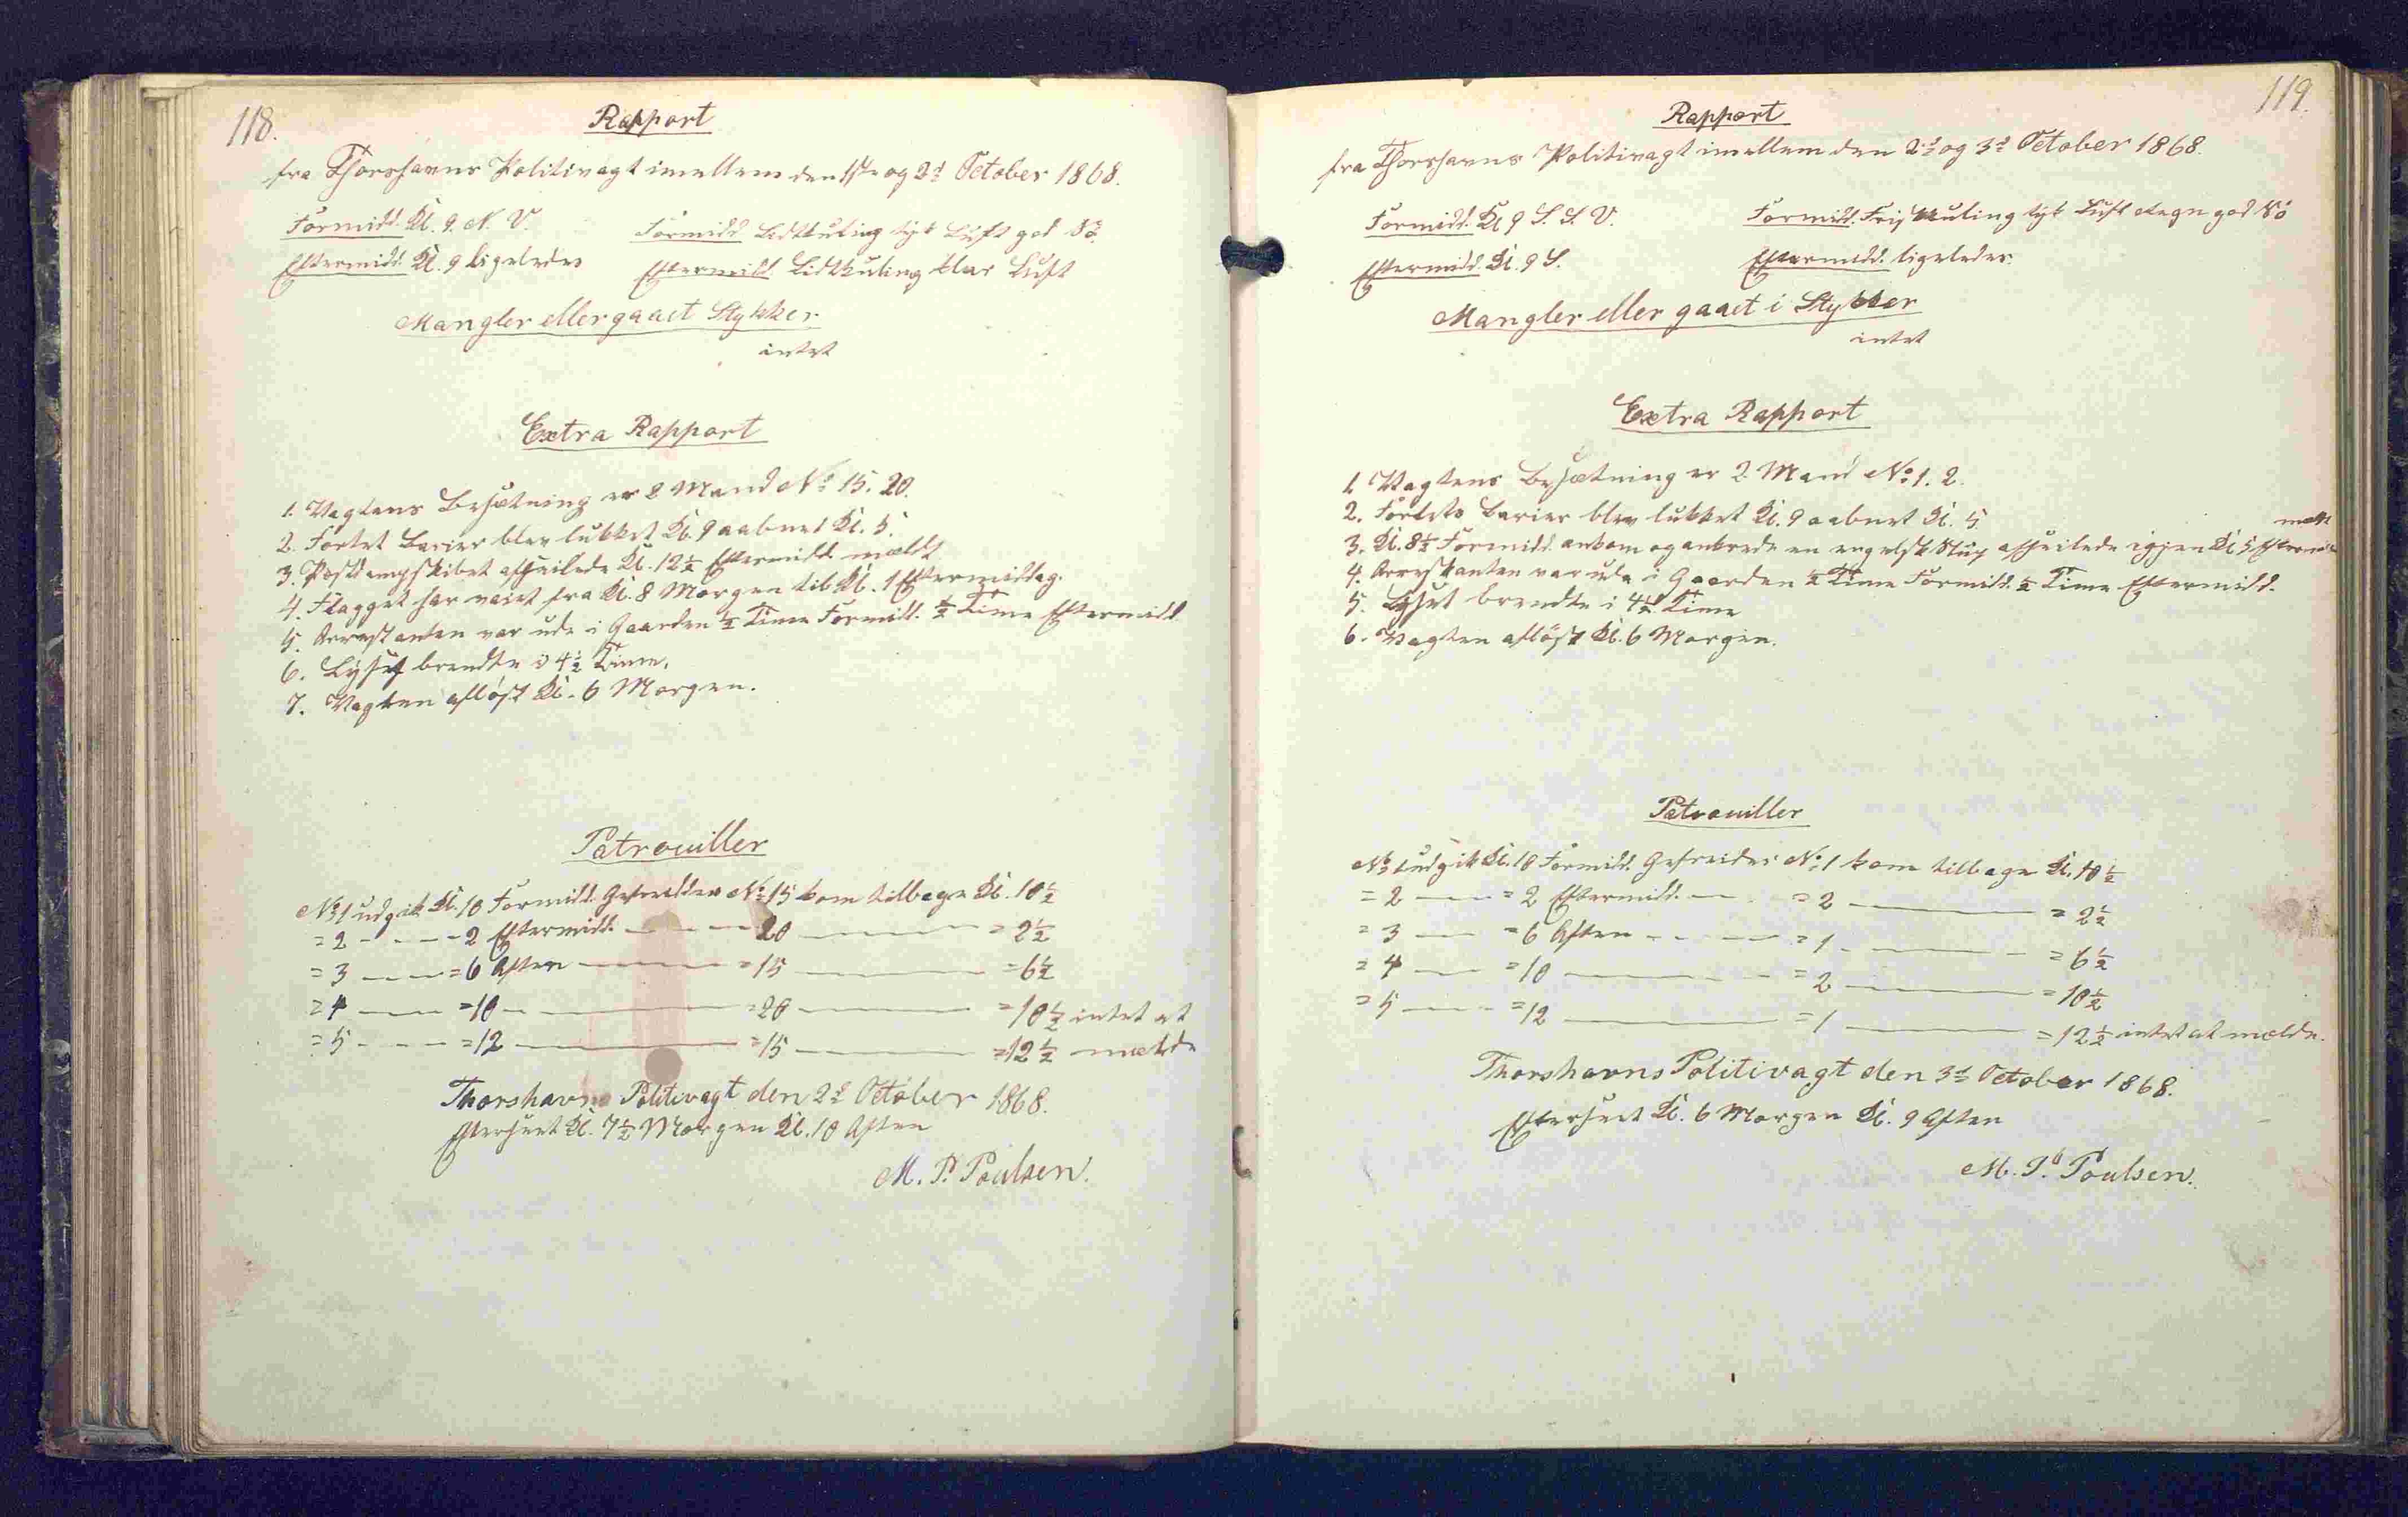 118.
Rapport
fra Thorshavns Politivagt imellem den 1ste og 2d October 1868.
Formidd. Kl. 9. N. V. Formidd Lidtkuling tyk Luft god Sö.
Eftermidd. Kl. 9 ligeledes Eftermidd. Lidtkuling klar Luft
Mangler eller gaaet Stykker.
intet
Extra Rapport
1. Vagtens Besætning er 2 Mand No 15. 20.
2. Fortet Barier blev lukket Kl. 9 aabnet Kl. 5.
3. Postdampskibet afseilede Kl. 12½ Eftermidd. mældt
4. Flagget har vaiet fra Kl. 8 Morgen til Kl. 1 Eftermiddag.
5. Arrestanten var ude i Gaarden ½ Time Formidd. ½ Time Eftermidd
6. Lyset brendte i 4½ Time.
7. Vagten aflöst Kl. 6 Morgen.
Patrouiller
No 1 udgik Kl. 10 Formidd. Gefreider No 15 kom tilbage Kl. 10½
= 2 — — - 2 Eftermidd. — — 20 — = 2½
= 3 — — = 6 Aften — = 15 — = 6½
= 4 — — = 10 — = 20 — = 10½ intet at
= 5 - — = 12 — = 15 — = 12½ mælde
Thorshavns Politivagt den 2d October 1868.
Efterseet Kl. 7½ Morgen Kl. 10 Aften
M. P. Poulsen.
119.
Rapport
fra Thorshavns Politivagt imellem den 2d og 3d October 1868.
Formidd. Kl 9 S. S. V. Formidd. Frisk Kuling tyk Luft Regn god Sö
Eftermidd. Kl. 9 S. Eftermidd. ligeledes.
Mangler eller gaaet i Stykker
intet
Extra Rapport
1. Vagtens Besætning er 2 Mand No 1. 2.
2. Fortets Barier blev lukket Kl. 9 aabnet Kl. 5
mældt
3. Kl. 8½ Formidd. ankom og ankrede en engelsk Slup afseilede igjen Kl 5 Eftermidd
4. Arrestanten var ude i Gaarden ½ Time Formidd. ½ Time Eftermidd.
5. Lyset brendte i 4½ Time
6. Vagten aflöst Kl. 6 Morgen.
Patrouiller
No 1 udgik Kl. 10 Formidd. Gefreider No 1 kom tilbage Kl. 10½
= 2 — = 2 Eftermidd. — = 2 — = 2½
= 3 — = 6 Aften - - — = 1 - — = 6½
= 4 — = 10 — = 2 — = 10½
= 5 — = 12 — = 1 — = 12½ intet at mælde.
Thorshavns Politivagt den 3d October 1868.
Efterseet Kl. 6 Morgen Kl. 9 Aften
M. P. Poulsen.